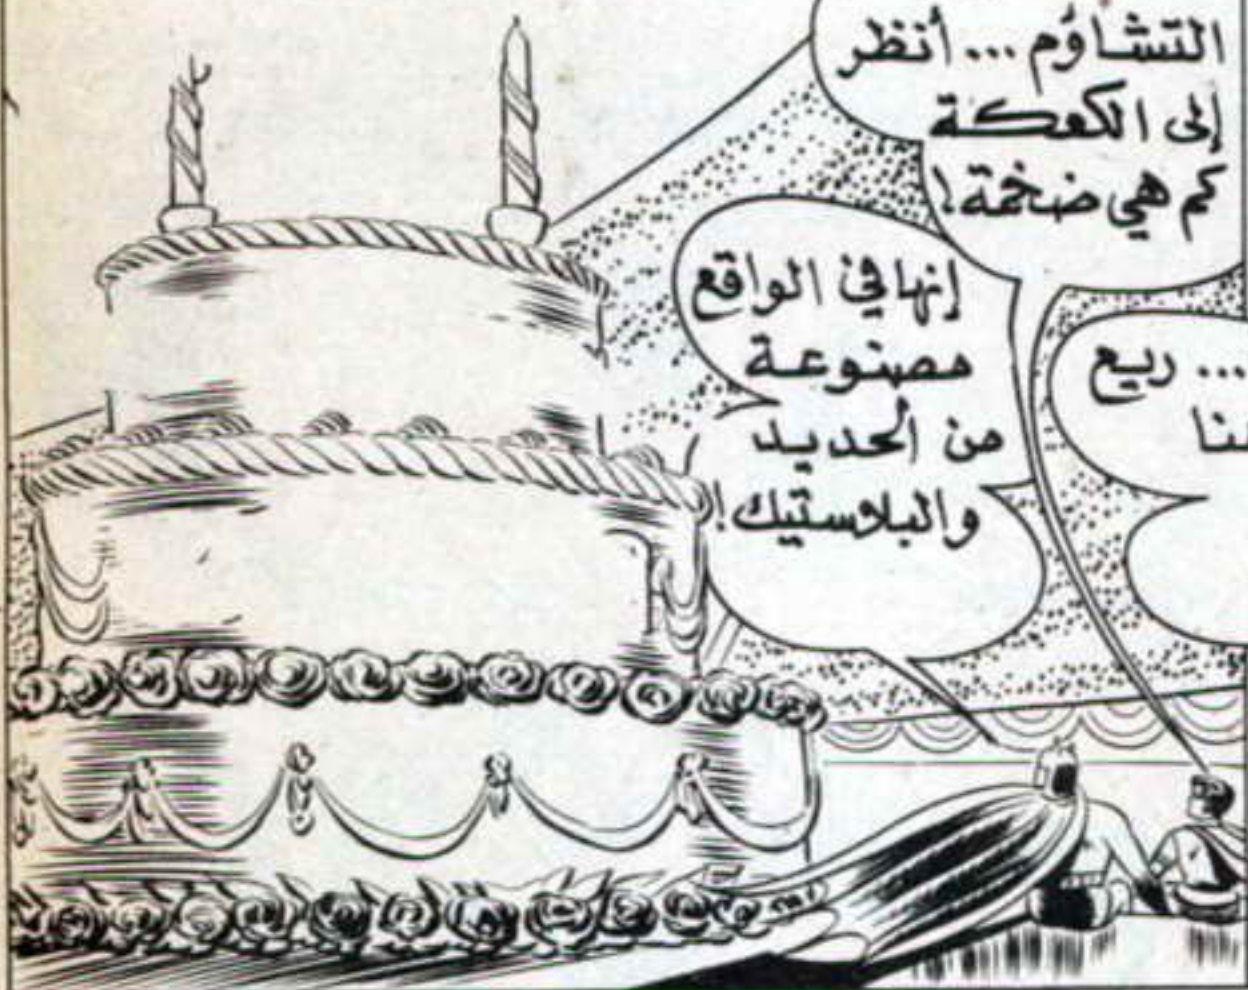 التشاؤم ... أنظر
إلى الكعكة
كم هي ضخمة!
إنها في الواقع
مصنوعة
من الحديد
والبلاستيك!
... ريع